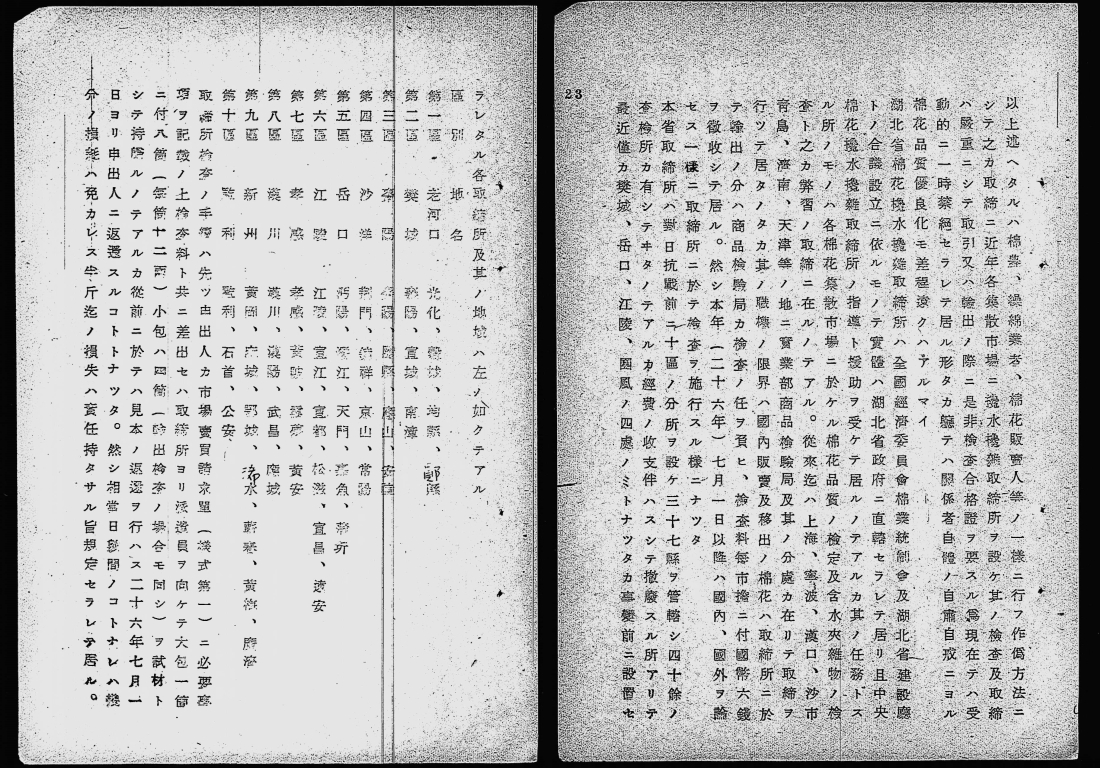 以上述ヘタルハ棉農、繰綿業者、棉花販賣人等ノ一樣ニ行フ作僞方法ニ
シテ之カ取締ニ近年各集散市場ニ攙水攙雜取締所ヲ設ケ其ノ檢查及取締
ハ嚴重ニシテ取引又ハ輸出ノ際ニ是非檢查合格證ヲ要スル爲現在テハ受
動的ニ一時禁絕セラレテ居ル形タカ軈テハ關係者自體ノ自肅自戒ニヨル
棉花品質優良化モ差程遠クハアルマイ
湖北省棉花攙水攙雜取締所ハ全國經濟委員會棉業統制會及湖北省建設廳
トノ合議設立ニ依ルモノテ實體ハ湖北省政府ニ直轄セラレテ居リ且中央
棉花攙水攙雜取締所ノ指導ト援助ヲ受ケテ居ルノテアルカ其ノ任務トス
ル所ノモノハ各棉花集散市場ニ於ケル棉花品質ノ檢定及含水夾雜物ノ檢
查ト之カ弊習ノ取締ニ在ルノテアル。從來迄ハ上海、寧波、漢口、沙市
青島、濟南、天津等ノ地ニ實業部商品檢驗局及其ノ分處カ在リテ取締ヲ
行ツテ居タノタカ其ノ職權ノ限界ハ國內販賣及移出ノ棉花ハ取締所ニ於
テ輸出ノ分ハ商品檢驗局カ檢查ノ任ヲ負ヒ、檢查料每市擔ニ付國幣六錢
ヲ徵收シテ居ル。然シ本年(二十六年)七月一日以降ハ國內、國外ヲ論
セス一樣ニ取締所ニ於テ檢查ヲ施行スル樣ニナツタ
本省取締所ハ對日抗戰前ニ十區ノ分所ヲ設ケ三十七縣ヲ管轄シ四十餘ノ
查檢所カ有シテヰタノテアルカ經費ノ收支件ハスシテ撤廢スル所アリテ
最近僅カ樊城、岳口、江陵、困風ノ四處ノミトナツタカ事變前ニ設置セ
23
ラレタル各取締所及其ノ地域ハ左ノ如クテアル
區別 地名
第一區 老河口 光化、穀城、均縣、鄖縣
第二區 樊城 襄陽、宜城、南漳
第三區
第四區 沙洋 荊門、鍾祥、京山、當陽
第五區 岳口 沔陽、潛江、天門、嘉魚、
第六區 江陵 江陵、宜江、宜都、松滋、宜昌、遠安
第七區 孝感 孝感、黃陂、雲夢、黃安
第八區 漢川 漢川、漢陽、武昌、
第九區 新州 黃岡、麻城、鄂城、浠水、蘄春、黃梅、廣濟
第十區 監利 監利、石首、公安
取締所檢查ノ手續ハ先ツ申出人カ市場賣買請求單(樣式第一)ニ必要事
項ヲ記載ノ上檢查料ト共ニ差出セハ取締所ヨリ派遣員ヲ向ケテ大包一箇
ニ付八箇(每箇十二兩)小包ハ四箇(輸出檢查ノ場合モ同シ)ヲ試材ト
シテ持歸ルノテアルカ從前ニ於テハ見本ノ返還ヲ行ハス二十六年七月一
日ヨリ申出人ニ返還スルコトトナツタ。然シ相當日數間ノコトナレハ幾
分ノ損耗ハ免カレス半斤迄ノ損失ハ責任持タサル旨規定セラレテ居ル。